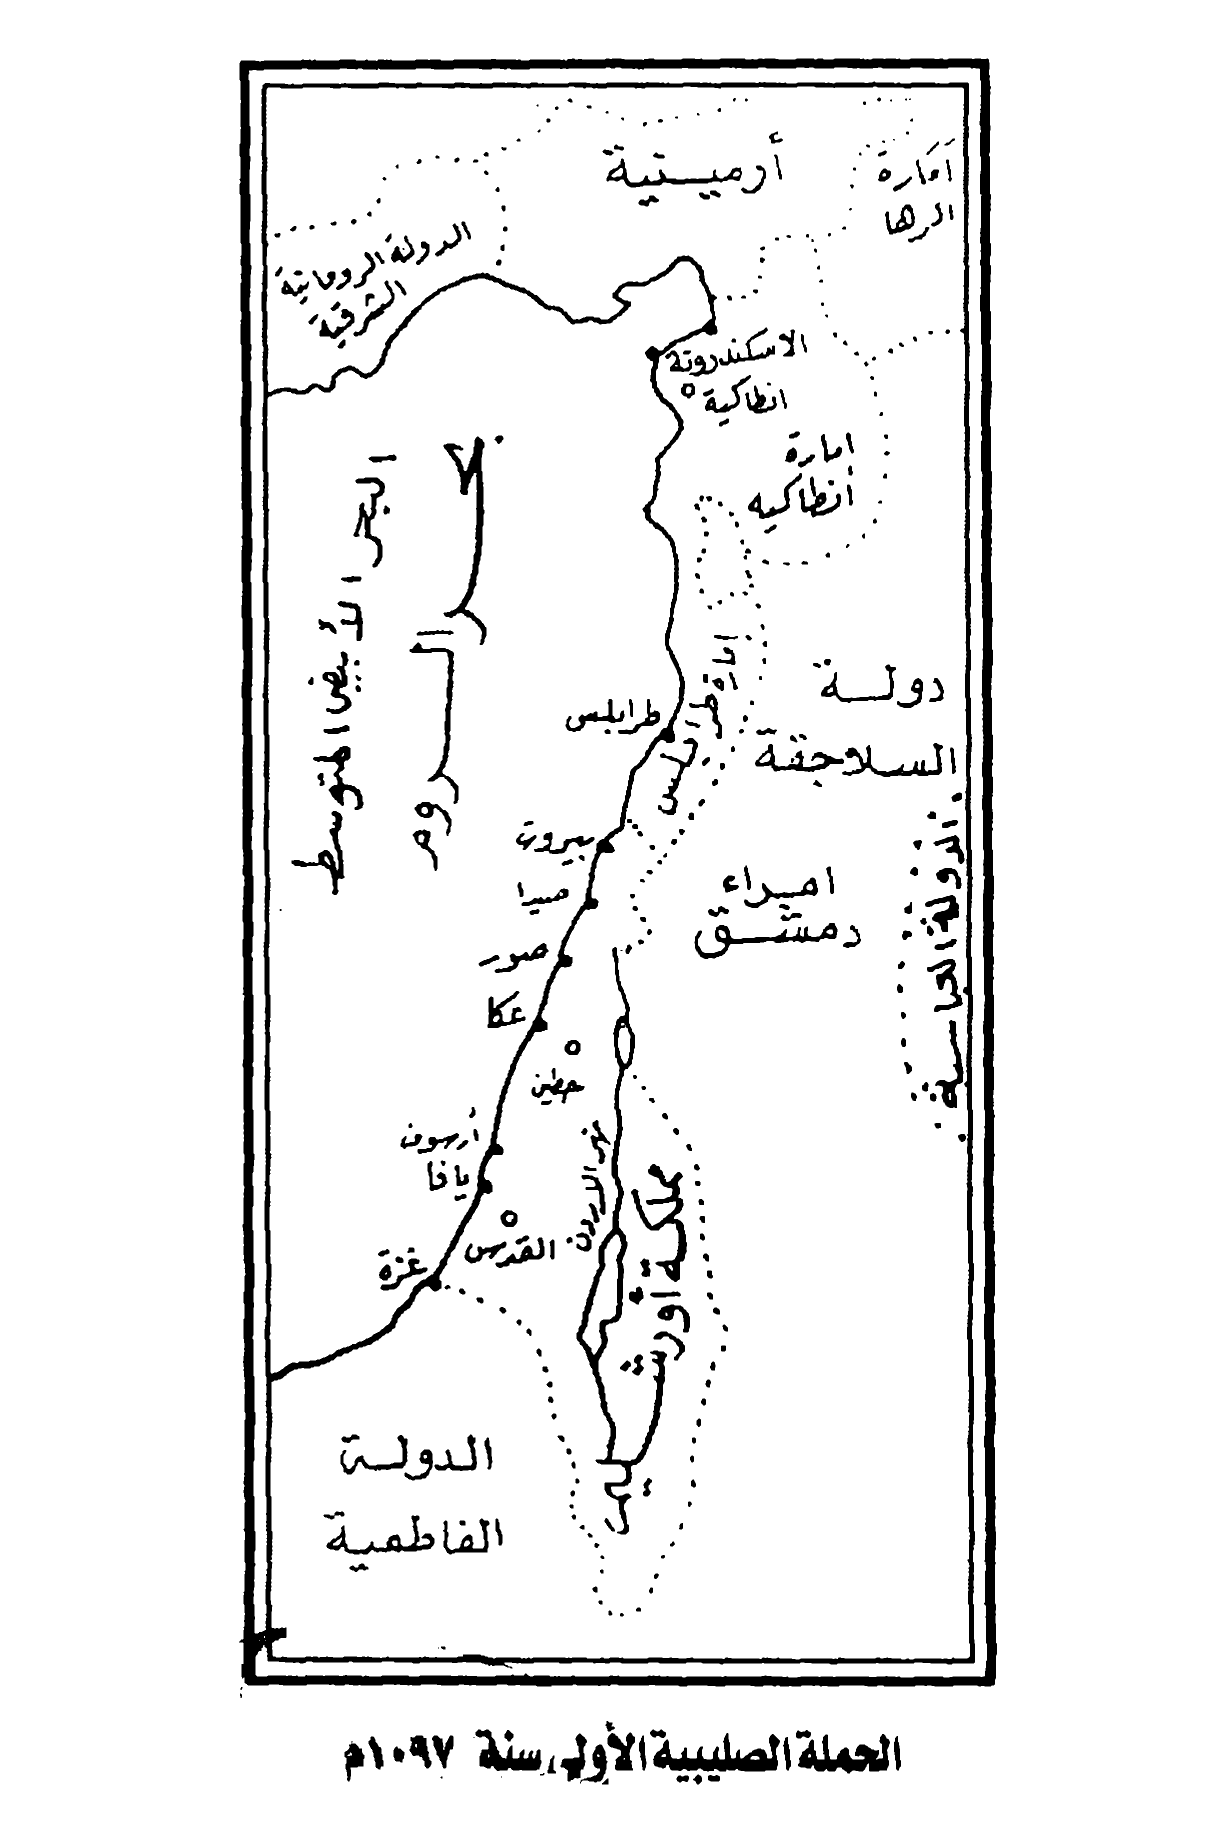 أرمينية
امارة
الرها
الدولة الرومانية
الشرقية
الاسكندرونة
انطاكية
امارة
أنطاكيه
البحر الأبيض المتوسط
بحر الروم
امارة طرابلس
طرابلس
دولة
السلاجقة
بيروت
صيدا
امراء
دمشق
الدولة العباسية
صور
عكا
حطين
أرسوف
يافا
نهر الاردن
القدس
غزة
مملكة أورشليم
الدولة
الفاطمية
الحملة الصليبية الأولى سنة ١٠٩٧م